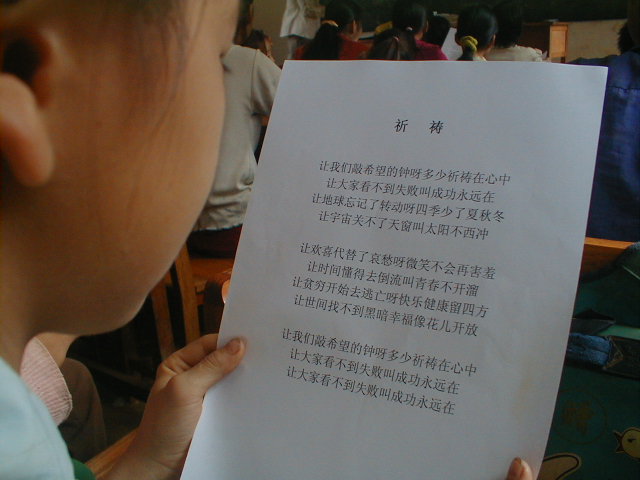 祈 祷
让我们敲希望的钟呀多少祈祷在心中
让大家看不到失败叫成功永远在
让地球忘记了转动呀四季少了夏秋冬
让宇宙关不了天窗叫太阳不西冲
让欢喜代替了哀愁呀微笑不会再害羞
让时间懂得去倒流叫青春不开溜
让贫穷开始去逃亡呀快乐健康留四方
让世间找不到黑暗幸福像花儿开放
让我们敲希望的钟呀多少祈祷在心中
让大家看不到失败叫成功永远在
让大家看不到失败叫成功永远在